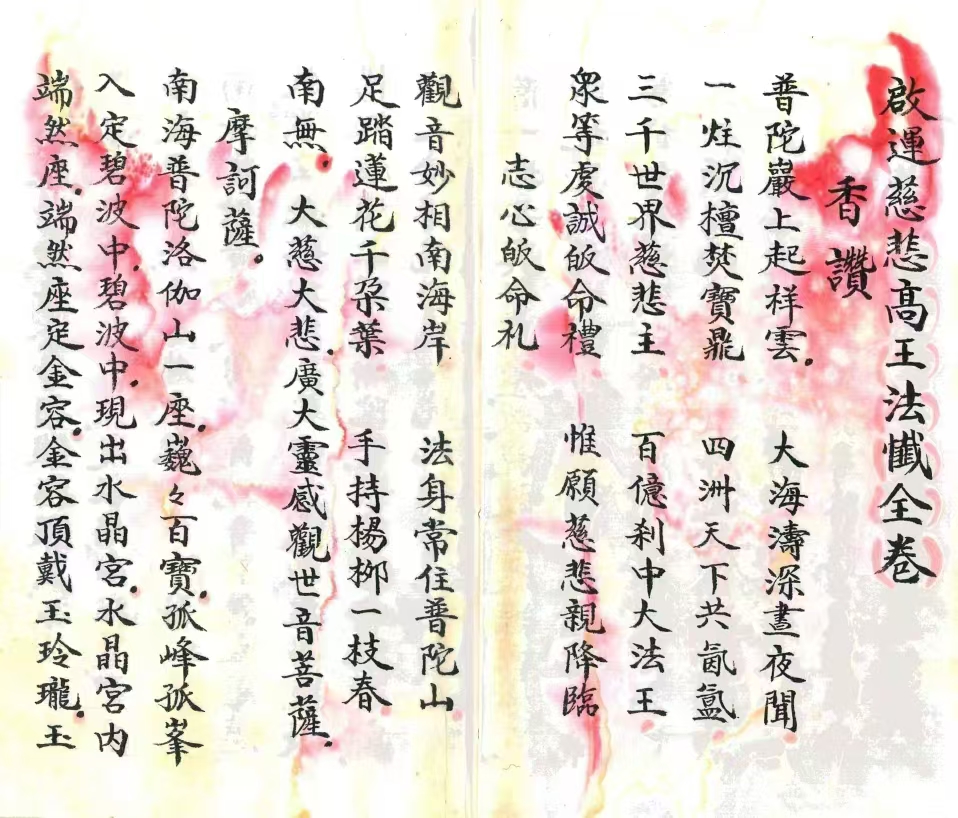 啟運慈悲高王法懺全卷
香讚
普陀巖上起祥雲。 大海濤深晝夜聞
一炷沉檀焚寶鼎 四洲天下共氤氳
三千世界慈悲主 百億剎中大法王
眾等虔誠皈命禮 惟願慈悲親降臨
志心皈命礼
觀音妙相南海岸 法身常住普陀山
足踏蓮花千朶葉 手持楊柳一枝春
南無 大慈大悲.廣大靈感觀世音菩薩.
摩訶薩。
南海普陀洛伽山一座.巍々百寶.孤峰孤峯
入定碧波中.碧波中.現出水晶宮.水晶宮内
端然座.端然座定金容.金容頂戴玉玲瓏.玉